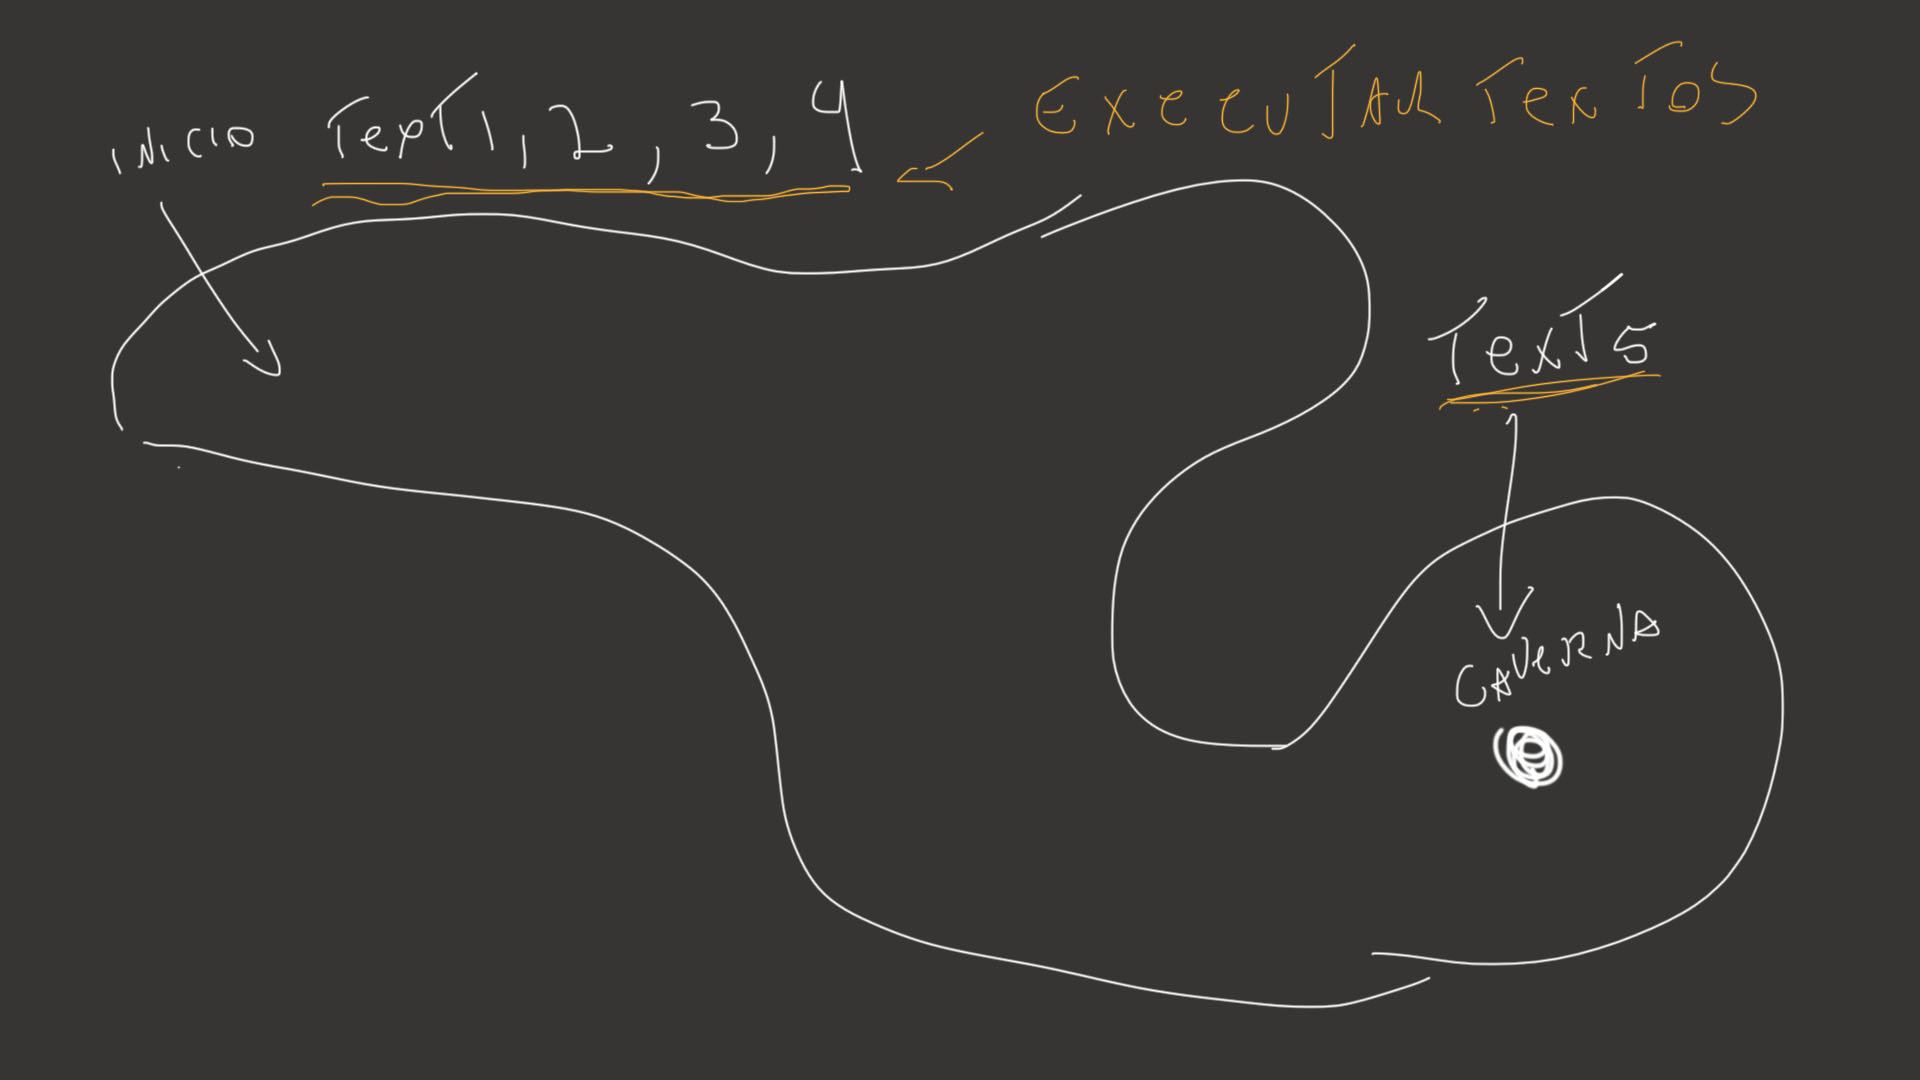 INICIO TexT1, 2, 3, 4
EXeCUTAR TexTOS
TexT5
CAVeRNA